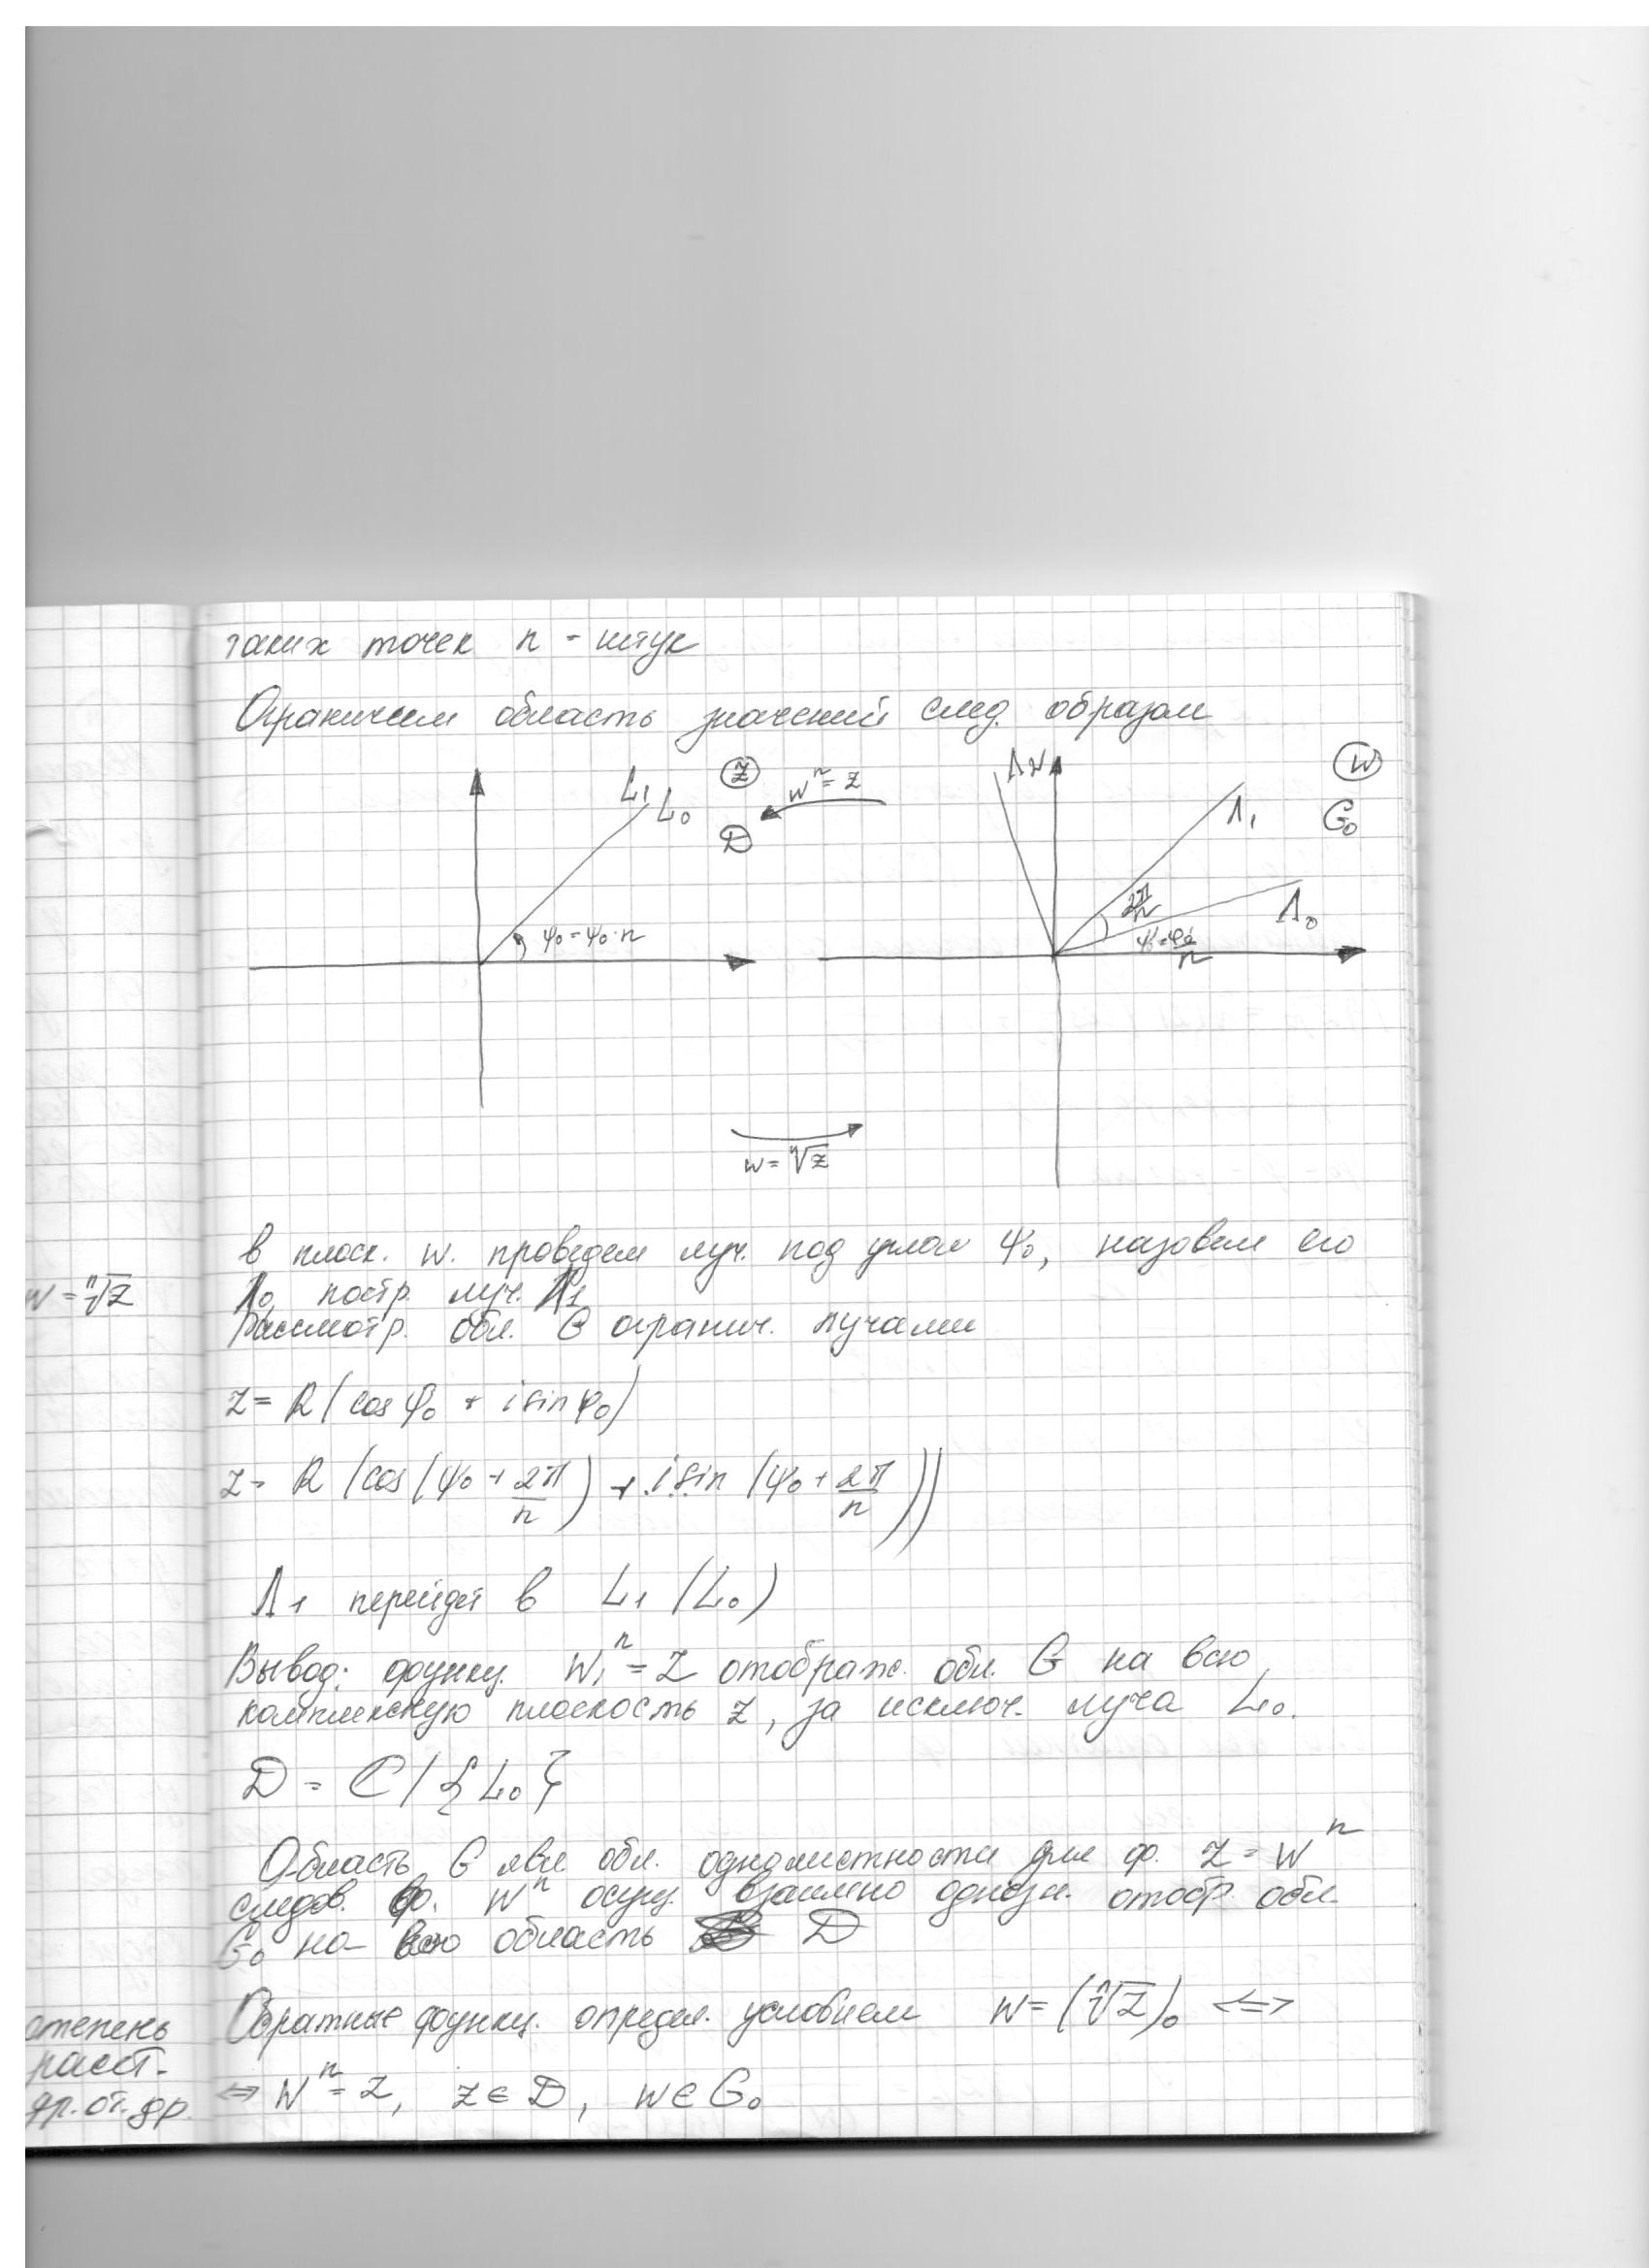 таких точек n - штук
Ограничим область значений след. образом
L₁ L₀ Z D
wⁿ = z
φ₀ = ψ₀·n
w = ⁿ√z
W G₀
Λ₁
Λ₀
2π/n
в плоск. w. проведем луч. под углом ψ₀, назовем его
Λ₀, постр. луч. Λ₁
Рассмотр. обл. G огранич. лучами
z = R(cos φ₀ + i sin φ₀)
z = R (cos(ψ₀ + 2π/n) + i sin (ψ₀ + 2π/n))
Λ₁ перейдет в L₁ (L₀)
Вывод: функц. Wⁿ = Z отображ. обл. G на всю
комплексную плоскость z, за исключ. луча L₀.
D = C / {L₀}
Область G явл. обл. однолистности для ф. Z = Wⁿ
следов. ф. Wⁿ осущ. взаимно однозн. отобр. обл.
G₀ на всю область D
Обратные функц. определ. условием w = (ⁿ√z)₀ <=>
<=> Wⁿ = z, z ∈ D, w ∈ G₀
w = ⁿ√z
степень
расст.
др. от. др.